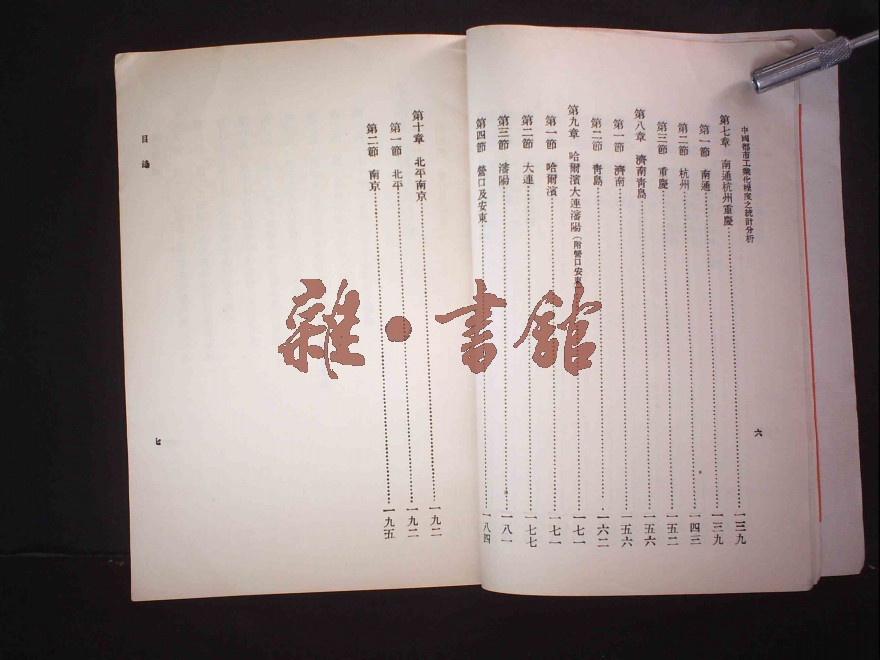 中國都市工業化程度之統計分析
第七章 南通杭州重慶……一三九
第一節 南通……一三九
第二節 杭州……一四三
第三節 重慶……一五二
第八章 濟南靑島……一五六
第一節 濟南……一五六
第二節 靑島……一六二
第九章 哈爾濱大連瀋陽(附營口安東)……一七一
第一節 哈爾濱……一七一
第二節 大連……一七七
第三節 瀋陽……一八一
第四節 營口及安東……一八四
六
第十章 北平南京……一九二
第一節 北平……一九二
第二節 南京……一九五
目 錄
七
雜·書館